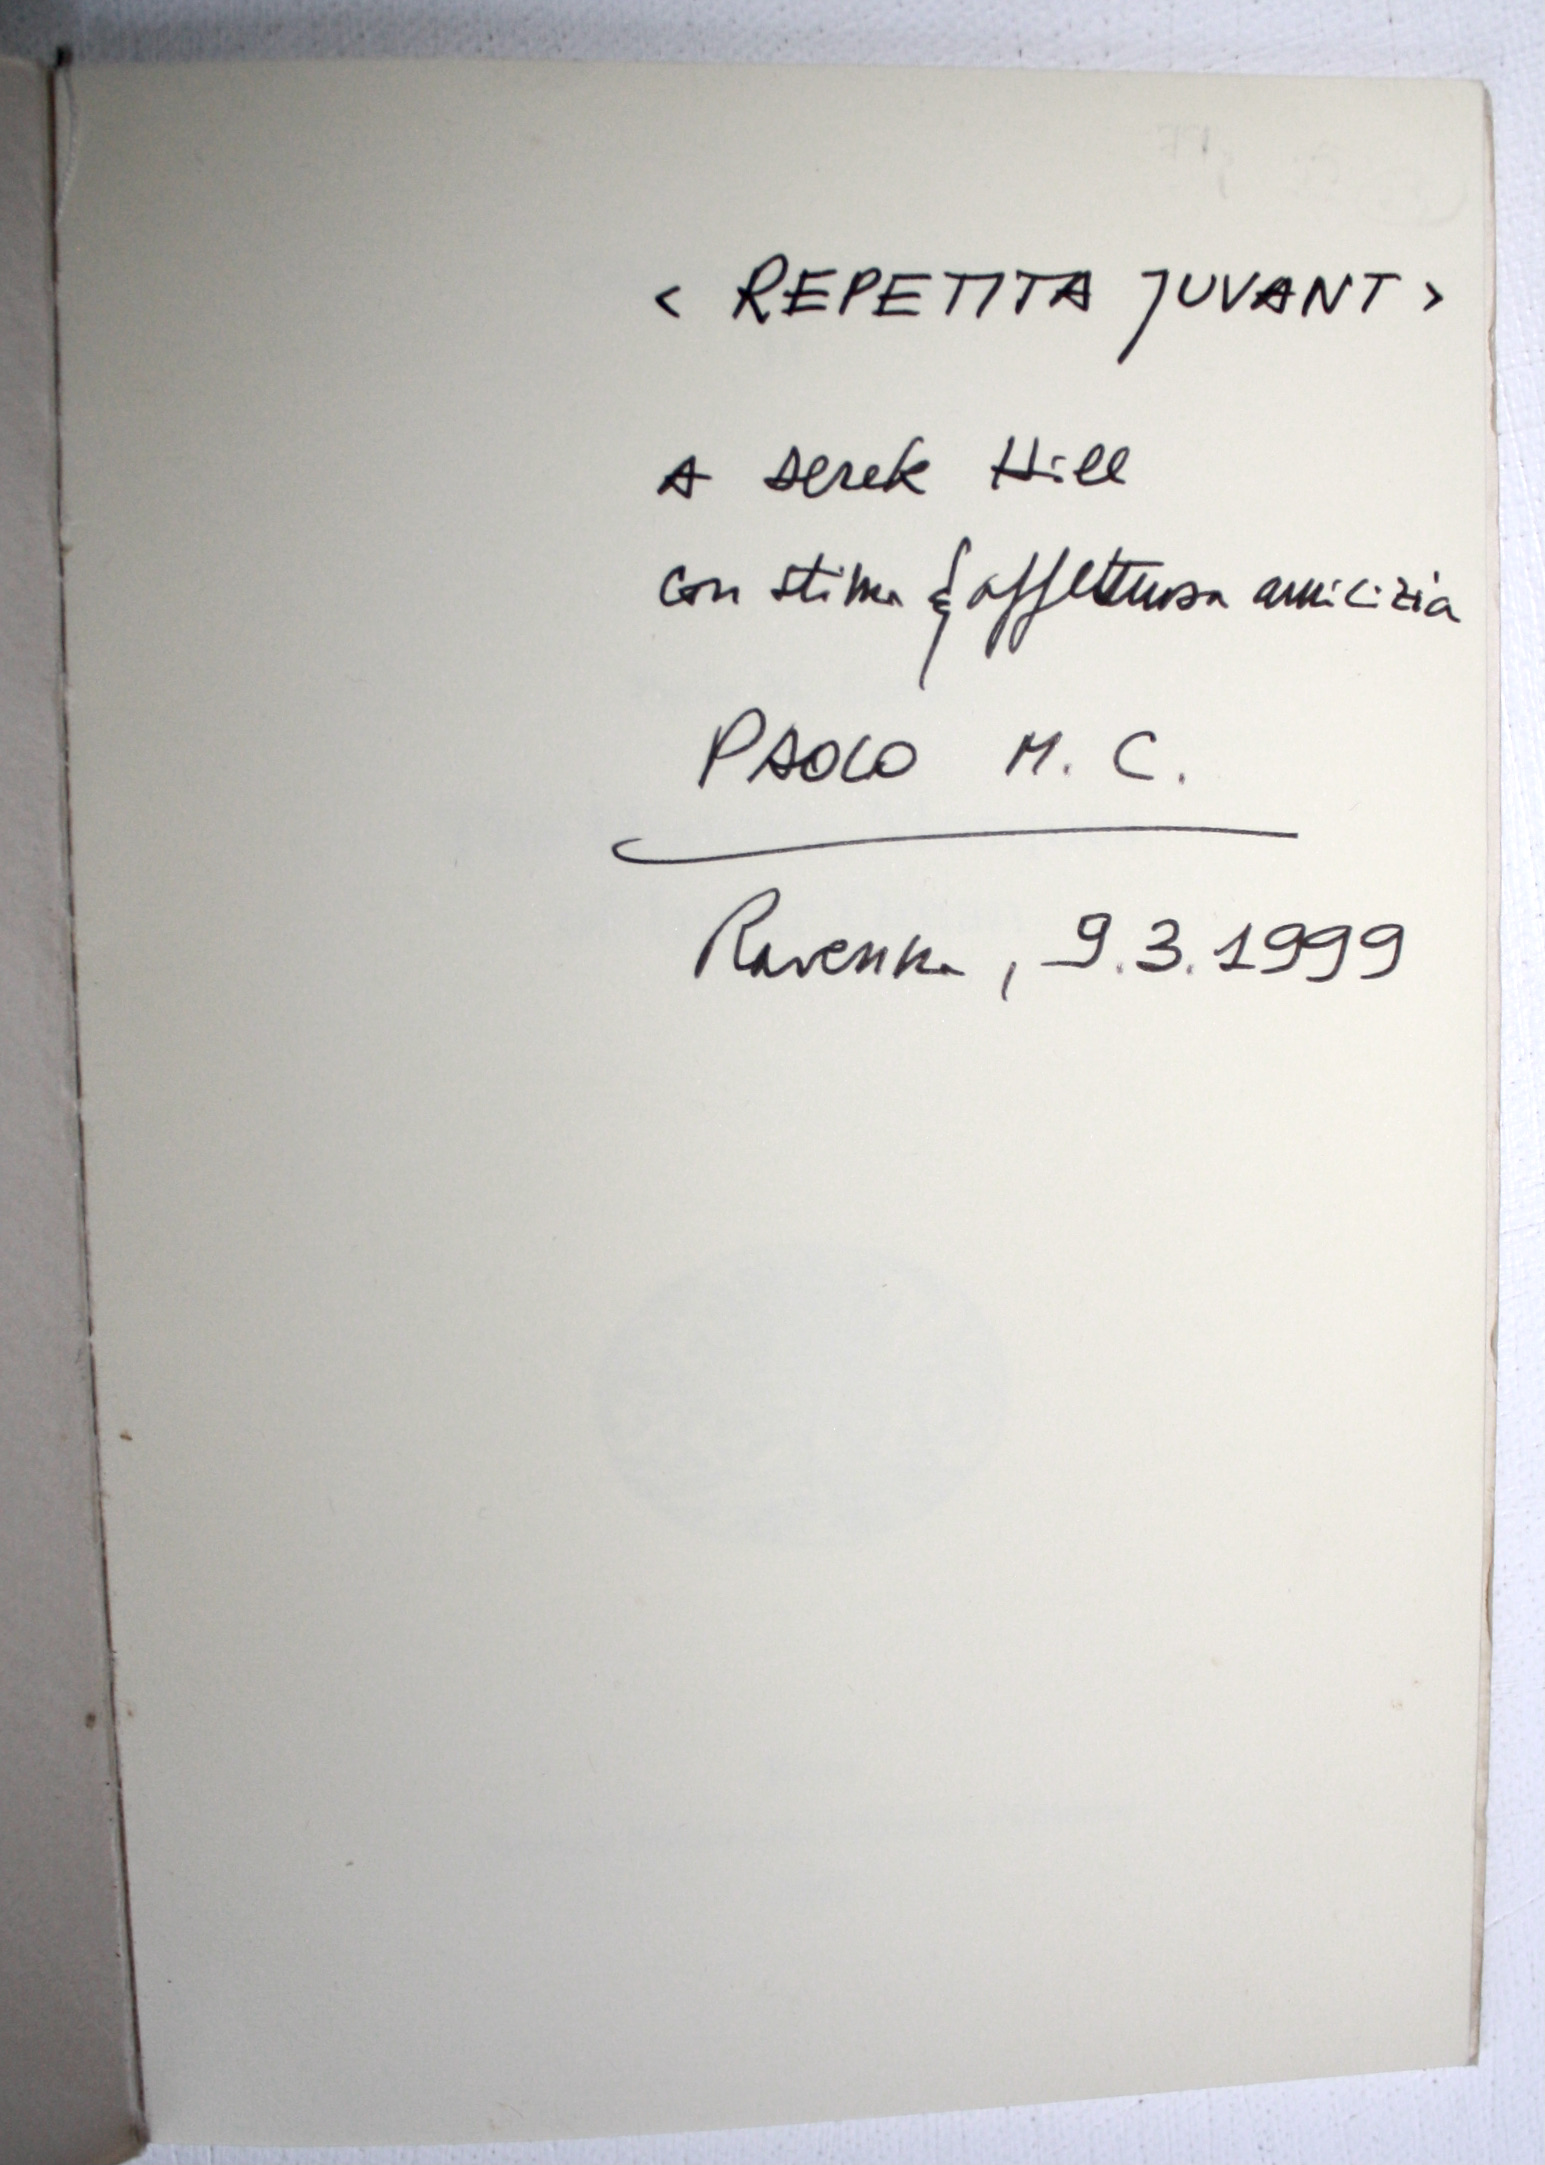 < REPETITA JUVANT >
A Derek Hill
con stima & affettuosa amicizia
PAOLO M. C.
Ravenna, 9.3.1999